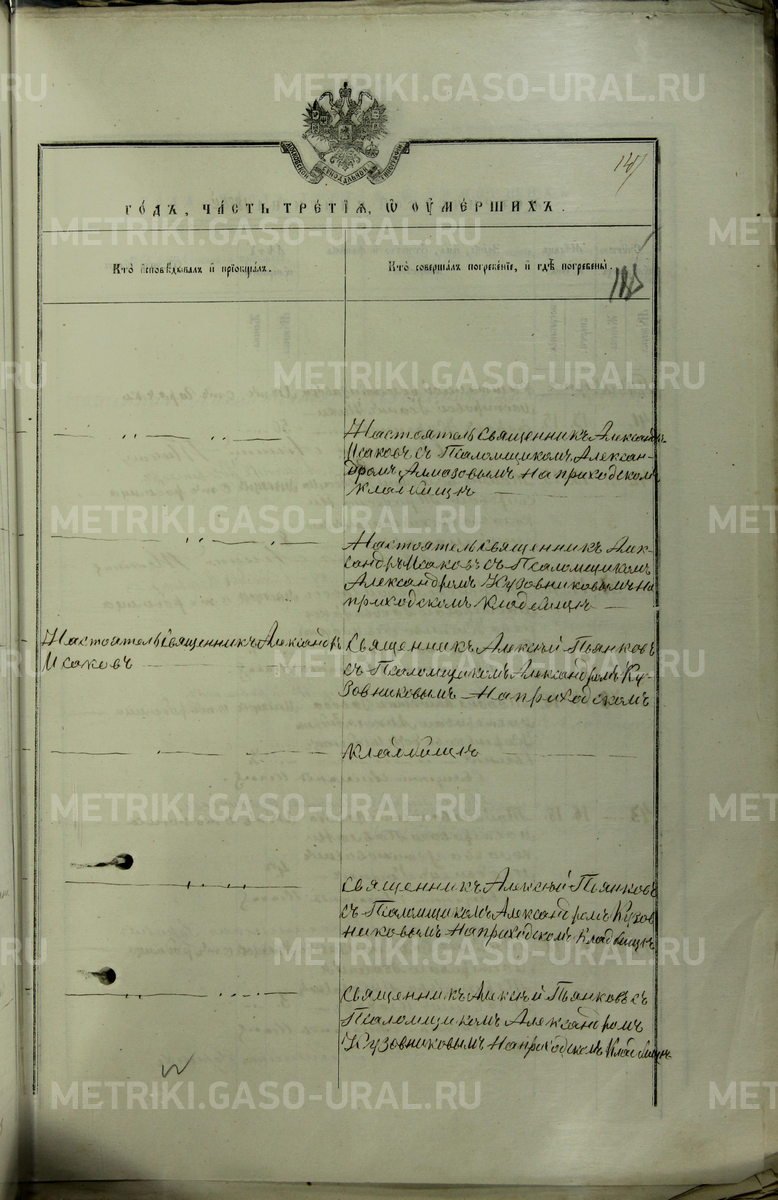 METRIKI.GASO-URAL.RU
МОСКОВСКОЙ СѴНОДАЛЬНОЙ ТИПОГРАФІИ
го́дъ, ча́сть тре́тїѧ, ѡ҆ оу҆ме́ршихъ.
Кто̀ и҆сповѣ́дывалъ и҆ прїобща́лъ.
Кто̀ соверша́лъ погребе́нїе, и҆ гдѣ̀ погребены̀.
185
Настоятель Священникъ Александръ
Исаковъ съ Псаломщикомъ Алексан-
дромъ Алмазовымъ на приходскомъ
кладбищѣ
Настоятель Священникъ Алек-
сандръ Исаковъ съ Псаломщикомъ
Александромъ Кузовниковымъ на
приходскомъ кладбищѣ
Настоятель Священникъ Александръ
Исаковъ
Священникъ Алексѣй Пьянковъ
съ Псаломщикомъ Александромъ Ку-
зовниковымъ на приходскомъ
кладбищѣ
Священникъ Алексѣй Пьянковъ
съ Псаломщикомъ Александромъ Кузов
никовымъ на приходскомъ кладбищѣ
Священникъ Алексѣй Пьянковъ съ
Псаломщикомъ Александромъ
Кузовниковымъ на приходскомъ кладбищѣ